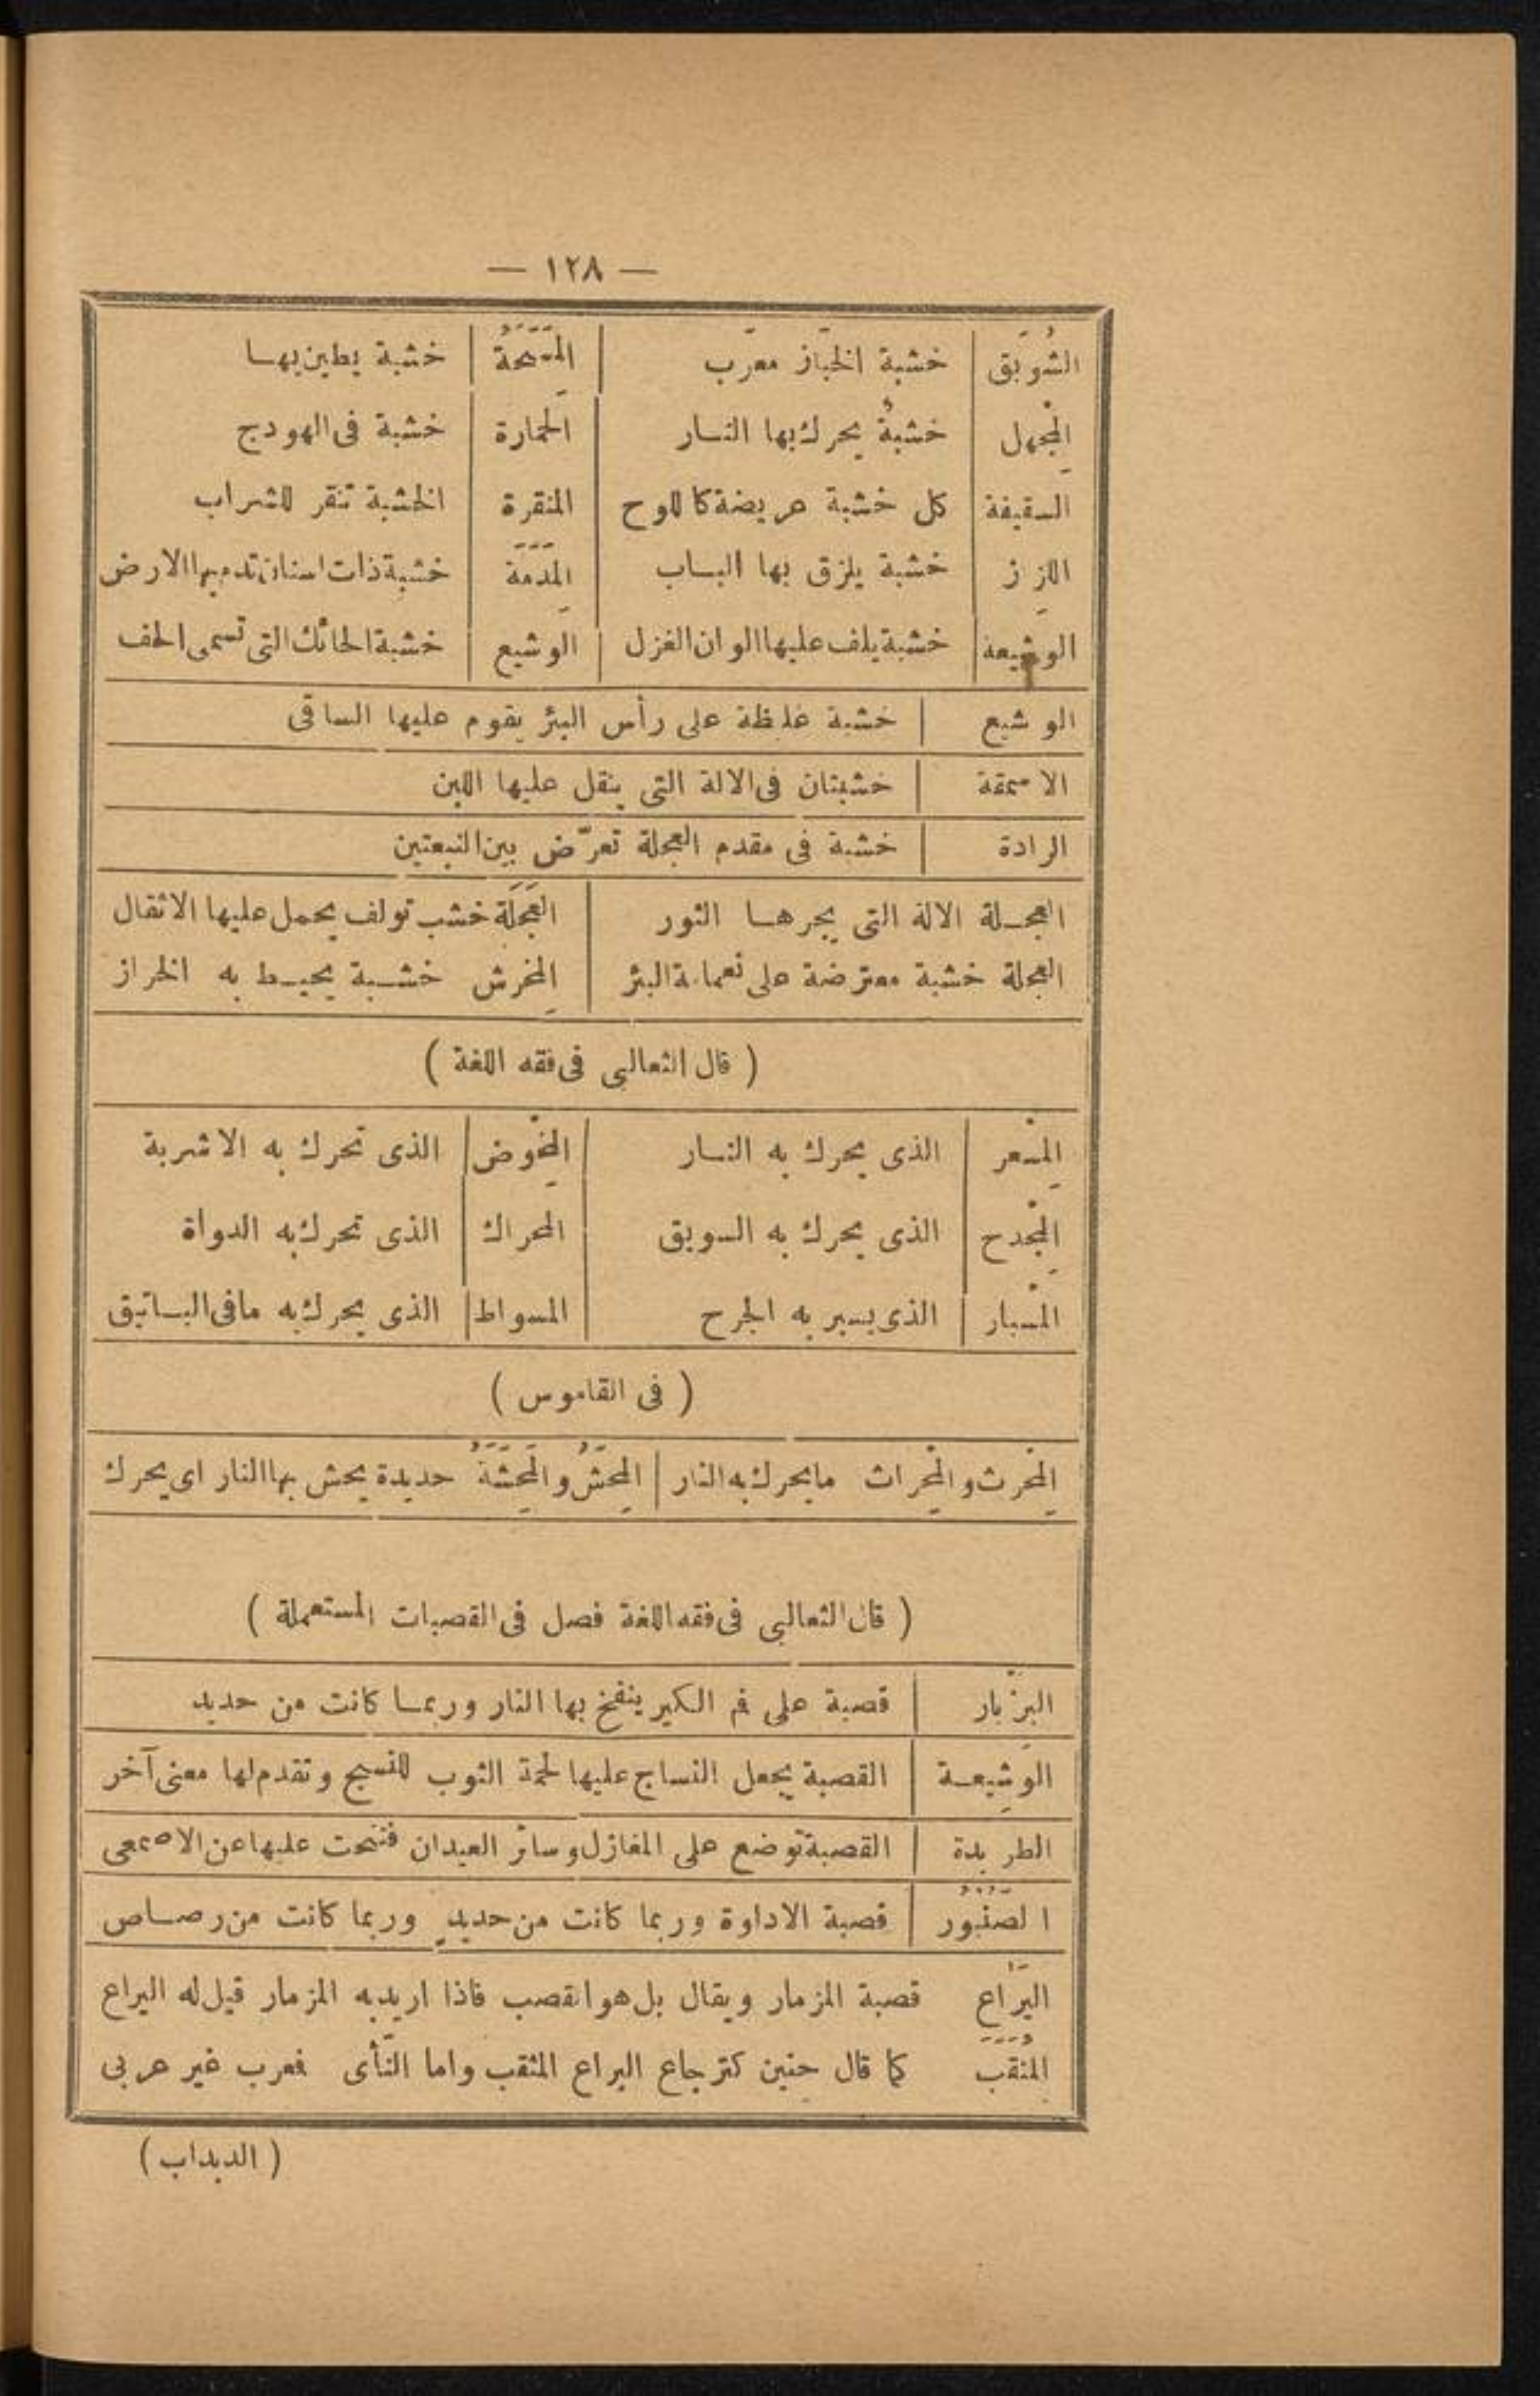 — ١٢٨ —
الشُّوبَق خشبة الخبّاز معرّب المَسَيحَةُ خشبة يطين بهـا
المِجْهل خشبةٌ يحرك بها النـار الحَمارة خشبة فى الهودج
السقيفة كل خشبة عريضة كاللوح المنقرة الخشبة تنقر للشراب
اللزاز خشبة يلزق بها البـاب المَدَمَّة خشبة ذات اسنان تدمم بها الارض
الوَشيعة خشبة يلف عليها الوان الغزل الوَشيع خشبة الحائك التى تسمى الحف
الوشيع خشبة غلظة على رأس البئر يقوم عليها الساقى
الاسمقة خشبتان فى الالة التى ينقل عليها اللبن
الرادة خشبة فى مقدم العجلة تعرّض بين النبعتين
العجـلة الالة التى يجرهـا الثور العَجَلَة خشب تولف يحمل عليها الاثقال
العجلة خشبة معترضة على نعمامة البئر المِخرش خشـبة يخيـط به الخراز
( قال الثعالبى فى فقه اللغة )
المِسْعر الذى يحرك به النـار المِخْوض الذى تحرك به الاشربة
المِجْدح الذى يحرك به السويق المحراك الذى تحرك به الدواة
المِسْبار الذى يسبر به الجرح المسواط الذى يحرك به مافى البسـاتيق
( فى القاموس )
المِحْرث والمِحْراث مايحرك به النار المِحَشُّ والمِحَشَّةُ حديدة يحش بها النار اى يحرك
( قال الثعالبى فى فقه اللغة فصل فى القصبات المستعملة )
البزْبار قصبة على فم الكير ينفخ بها النار وربمـا كانت من حديد
الوَشِيعـة القصبة يجعل النساج عليها لحمة الثوب للنسيج وتقدم لها معنى آخر
الطريدة القصبة توضع على المغازل وسائر العيدان فتنحت عليها عن الاصمعى
الصُنْبُور قصبة الاداوة وربما كانت من حديدٍ وربما كانت من رصـاص
اليَرَاع قصبة المزمار ويقال بل هو القصب فاذا اريد به المزمار قيل له اليراع
المُثَقَّبُ كما قال حنين كترجاع اليراع المثقب واما النّأى فمعرب غير عربى
( الدبداب )